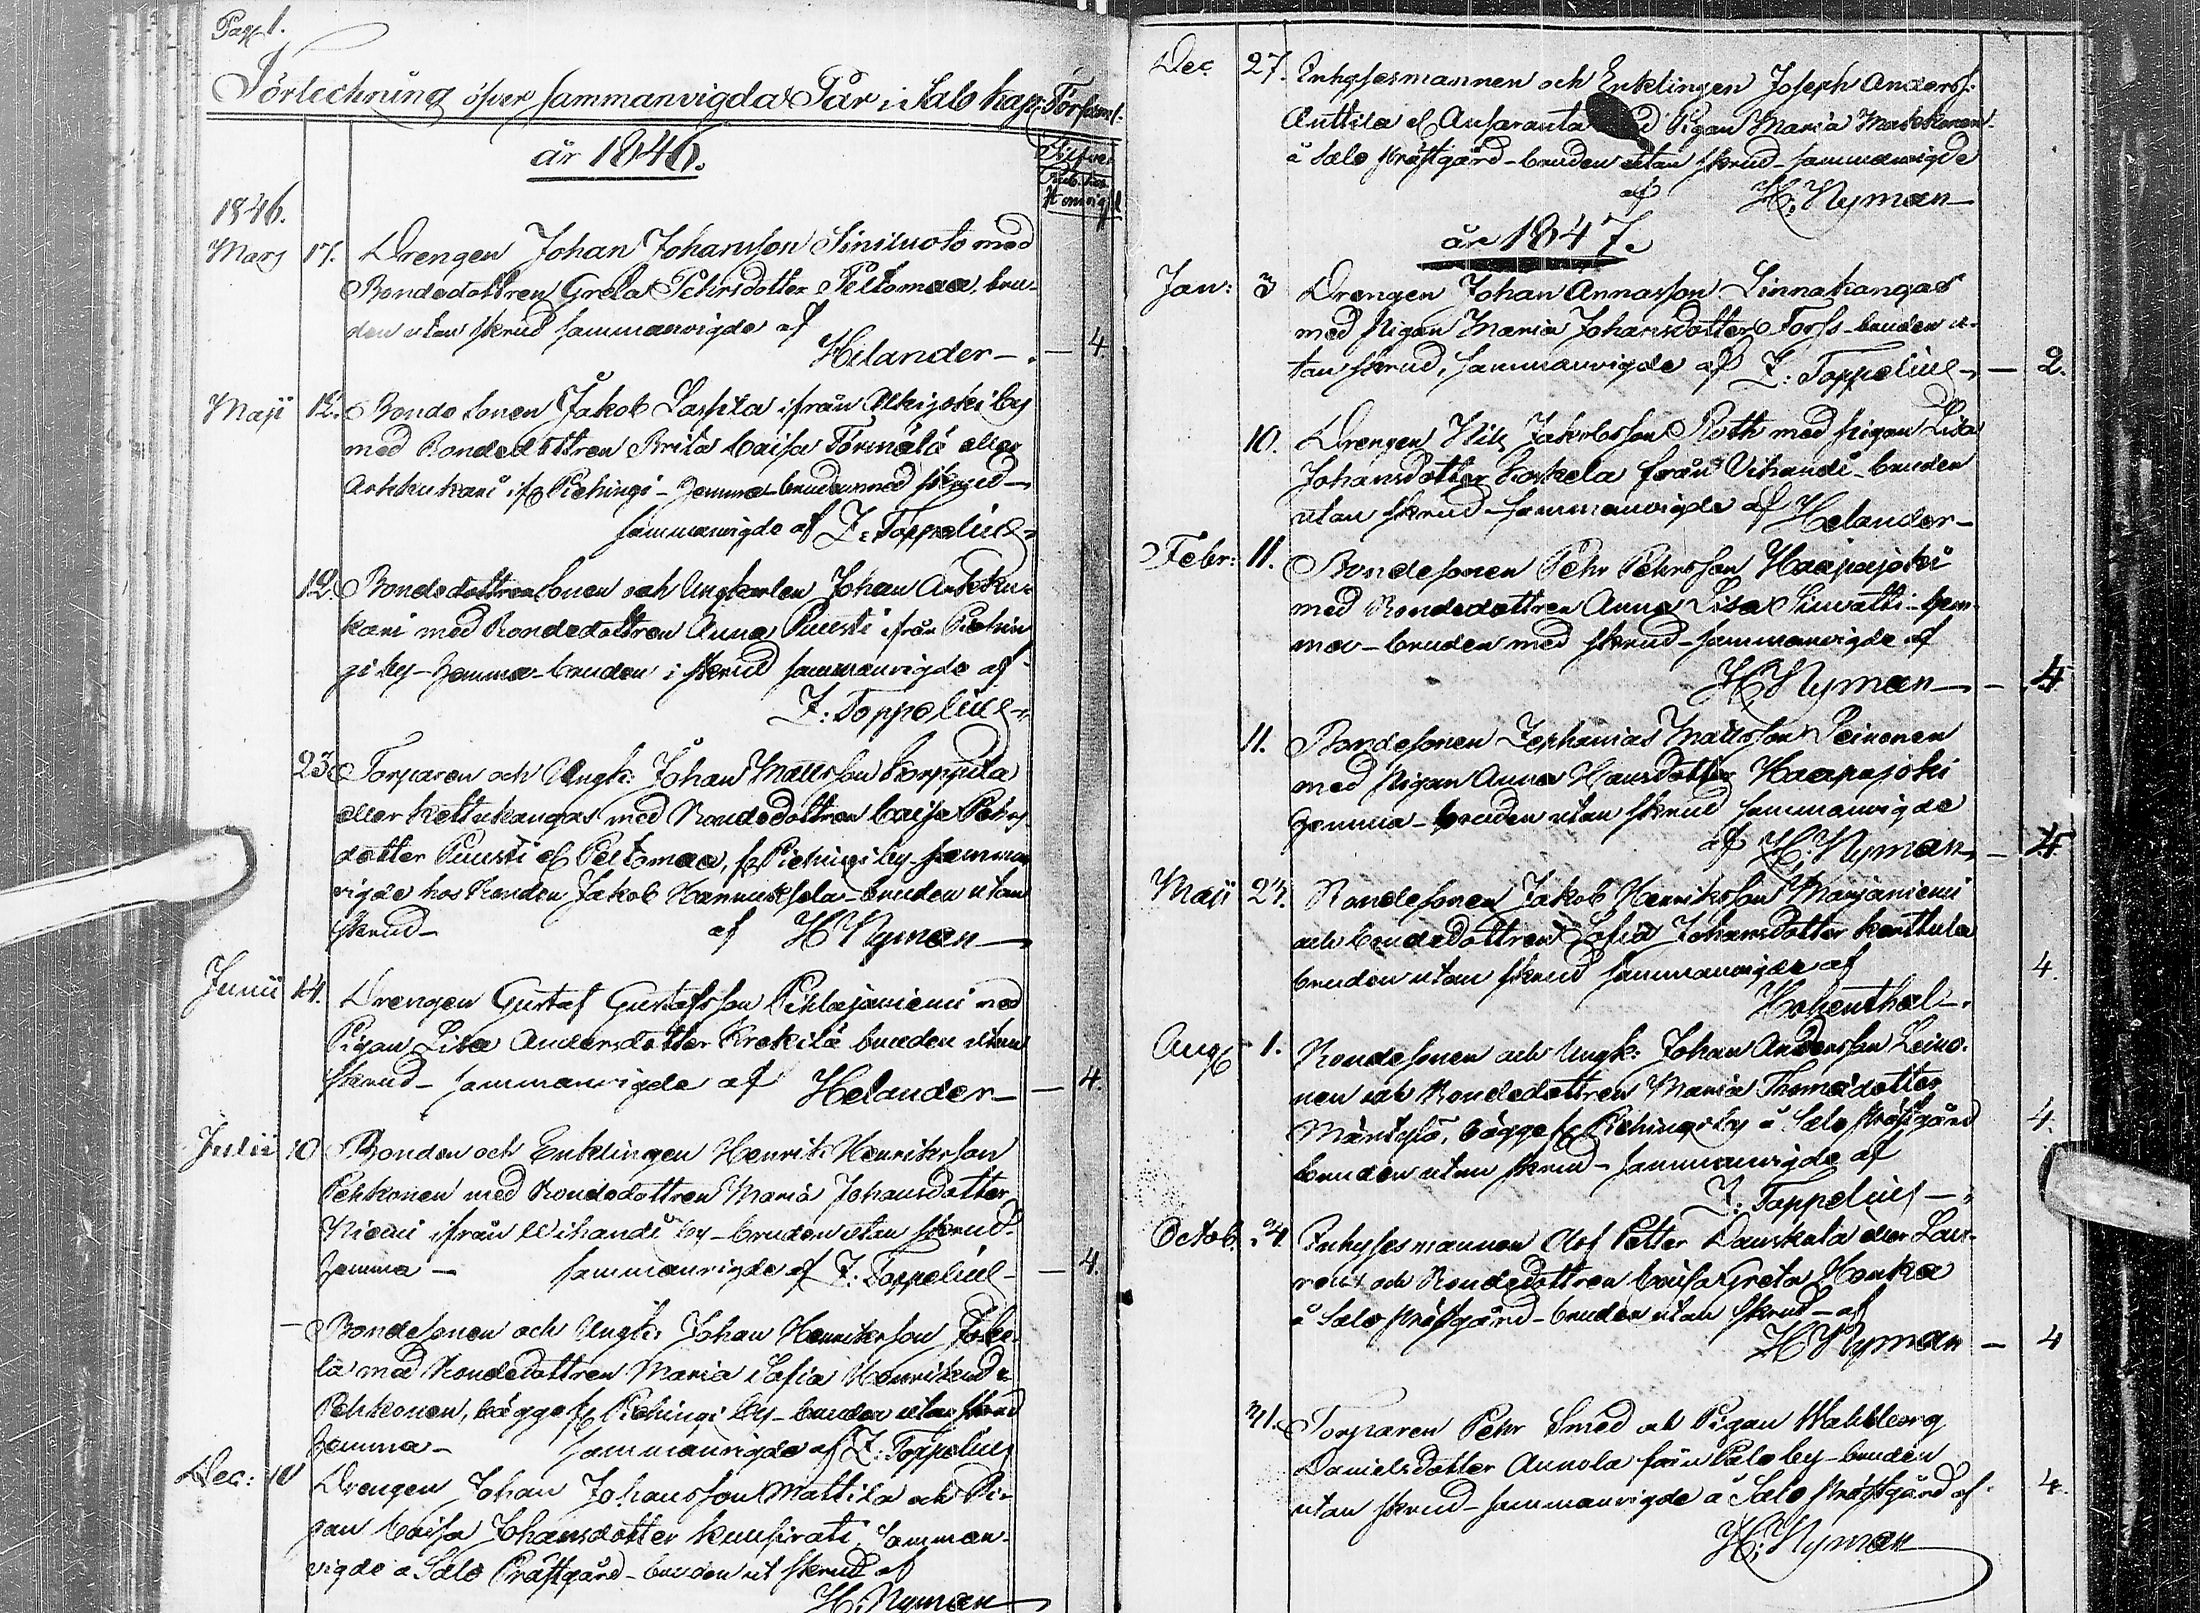 Pag 1.
Förteckning öfver sammanvigda Par i Salo Kap: Församl.
år 1846.
Silfver
1846.
Mars 17. Drengen Johan Johansson Siniluoto med
Bondedottren Greta Pehrsdotter Peltomaa, bru-
den utan skrud sammanvigde af
Helander — — 4.
Maji 12. Bondesonen Jakob Laspila ifrån Alkijoki by
med Bondedottren Brita Caisa Törmälä eller
Arkkukari if Piehingi - hemma - bruden med skrud —
sammanvigde af Z: Toppelius
12. Bondedottren sonen och Ungkarlen Johan Arkku-
kari med Bondedottren Anna Puusti ifrån Piehin
gi by - hemma - bruden i skrud sammanvigde af
Z: Toppelius
23 Torparen och Ungk: Johan Mattsson Korppila
eller Kettukangas med Bondedottren Caisa Pehrs-
dotter Puusti el Peltomaa, fr Piehingi by - samman
vigde hos Bonden Jakob Hannuksela - bruden utan
skrud - af H Nyman
Junii 14. Drengen Gustaf Gustafsson Pihlajaniemi med
Pigan Lisa Andersdotter Krekilä bruden utan
skrud - sammanvigde af Helander — 4.
Julii 10 Bonden och Enklingen Henrik Henriksson
Pehkonen med Bondedottren Maria Johansdotter
Niemi ifrån Wihandi by - bruden utan skrud -
hemma — sammanvigde af Z: Toppelius — 4.
— Bondesonen och Ungk: Johan Henriksson Joke-
la med Bondedottren Maria Sofia Henriksd:r
Pehkonen, bägge fr Piehingi by - bruden utan skrud
hemma — sammanvigde af Z: Toppelius
Dec: 10 Drengen Johan Johansson Mattila och Pi-
gan Caisa Johansdotter Kuusirati, samman-
vigde å Salo Prästgård - bruden ut skrud af
H: Nyman
Dec 27. Inhysesmannen och Enklingen Joseph Anderss:
Anttila el Ansaranta Pigan Maria Matokanen
å Salo Prästgård - bruden utan skrud - sammanvigde
af H: Nyman
år 1847.
Jan: 3 Drengen Johan Annasson Linnakangas
med Pigan Maria Johansdotter Forss - bruden u-
tan skrud, sammanvigde af Z: Toppelius — 2.
10. Drengen Nils Jakobsson Roth med Pigan Lisa
Johansdotter Koskela från Vihandi - bruden
utan skrud - sammanvigde af Helander —
Febr: 11. Bondesonen Pehr Pehrsson Haapajoki
med Bondedottren Anna Lisa Siuvatti - hem-
ma - bruden med skrud - sammanvigde af
H Nyman — — 4.
11. Bondesonen Zephanias Mattsson Leinonen
med Pigan Anna Hansdotter Haapajoki
hemma - bruden utan skrud sammanvigde
af H: Nyman — 4
Maji 23. Bondesonen Jakob Henriksson Marjaniemi
och Bondedottren Sofia Johansdotter Kerttula
bruden utan skrud sammanvigde af 4.
Hohenthal.
Aug 1. Bondesonen och Ungk: Johan Andersson Leino-
nen och Bondedottren Maria Thomædotter
Mäntylä, bägge fr Piehingi by å Salo Prästgård 4.
bruden utan skrud - sammanvigde af
Z: Toppelius —
Octob: 24 Inhysesmannen Olof Petter Danskala eller Lau-
ren och Bondedottren Caisa Greta Honka
å Salo Prästgård - bruden utan skrud - af
H Nyman — 4
31. Torparen Pehr Smed och Pigan Wahlborg
Danielsdotter Annola från Palo by - bruden
utan skrud - sammanvigde å Salo Prästgård af 4.
H: Nyman